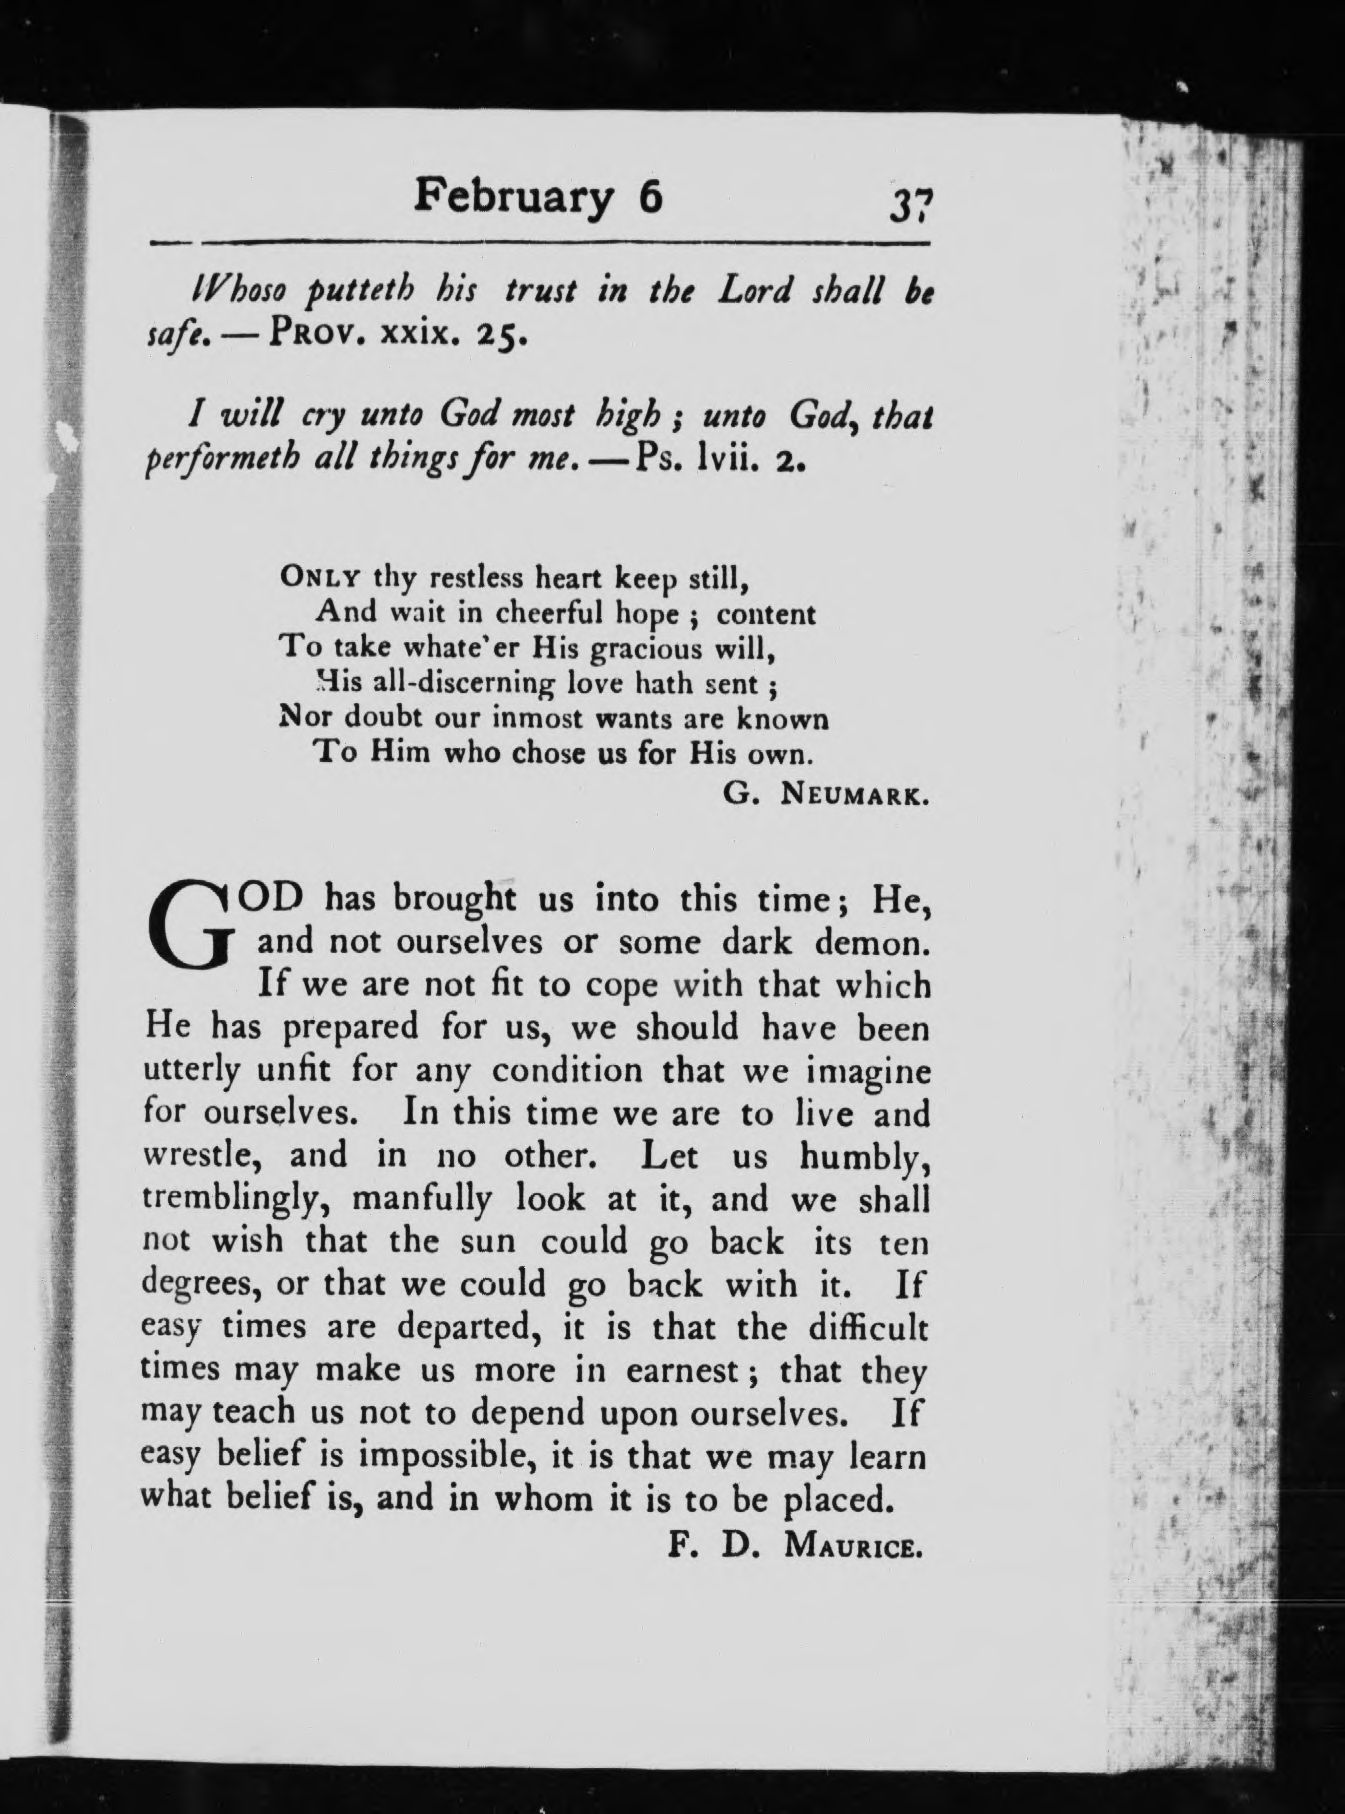 February 6 37
Whoso putteth his trust in the Lord shall be
safe. — PROV. xxix. 25.
I will cry unto God most high ; unto God, that
performeth all things for me. — Ps. lvii. 2.
ONLY thy restless heart keep still,
And wait in cheerful hope ; content
To take whate'er His gracious will,
His all-discerning love hath sent ;
Nor doubt our inmost wants are known
To Him who chose us for His own.
G. NEUMARK.
GOD has brought us into this time; He,
and not ourselves or some dark demon.
If we are not fit to cope with that which
He has prepared for us, we should have been
utterly unfit for any condition that we imagine
for ourselves. In this time we are to live and
wrestle, and in no other. Let us humbly,
tremblingly, manfully look at it, and we shall
not wish that the sun could go back its ten
degrees, or that we could go back with it. If
easy times are departed, it is that the difficult
times may make us more in earnest ; that they
may teach us not to depend upon ourselves. If
easy belief is impossible, it is that we may learn
what belief is, and in whom it is to be placed.
F. D. MAURICE.